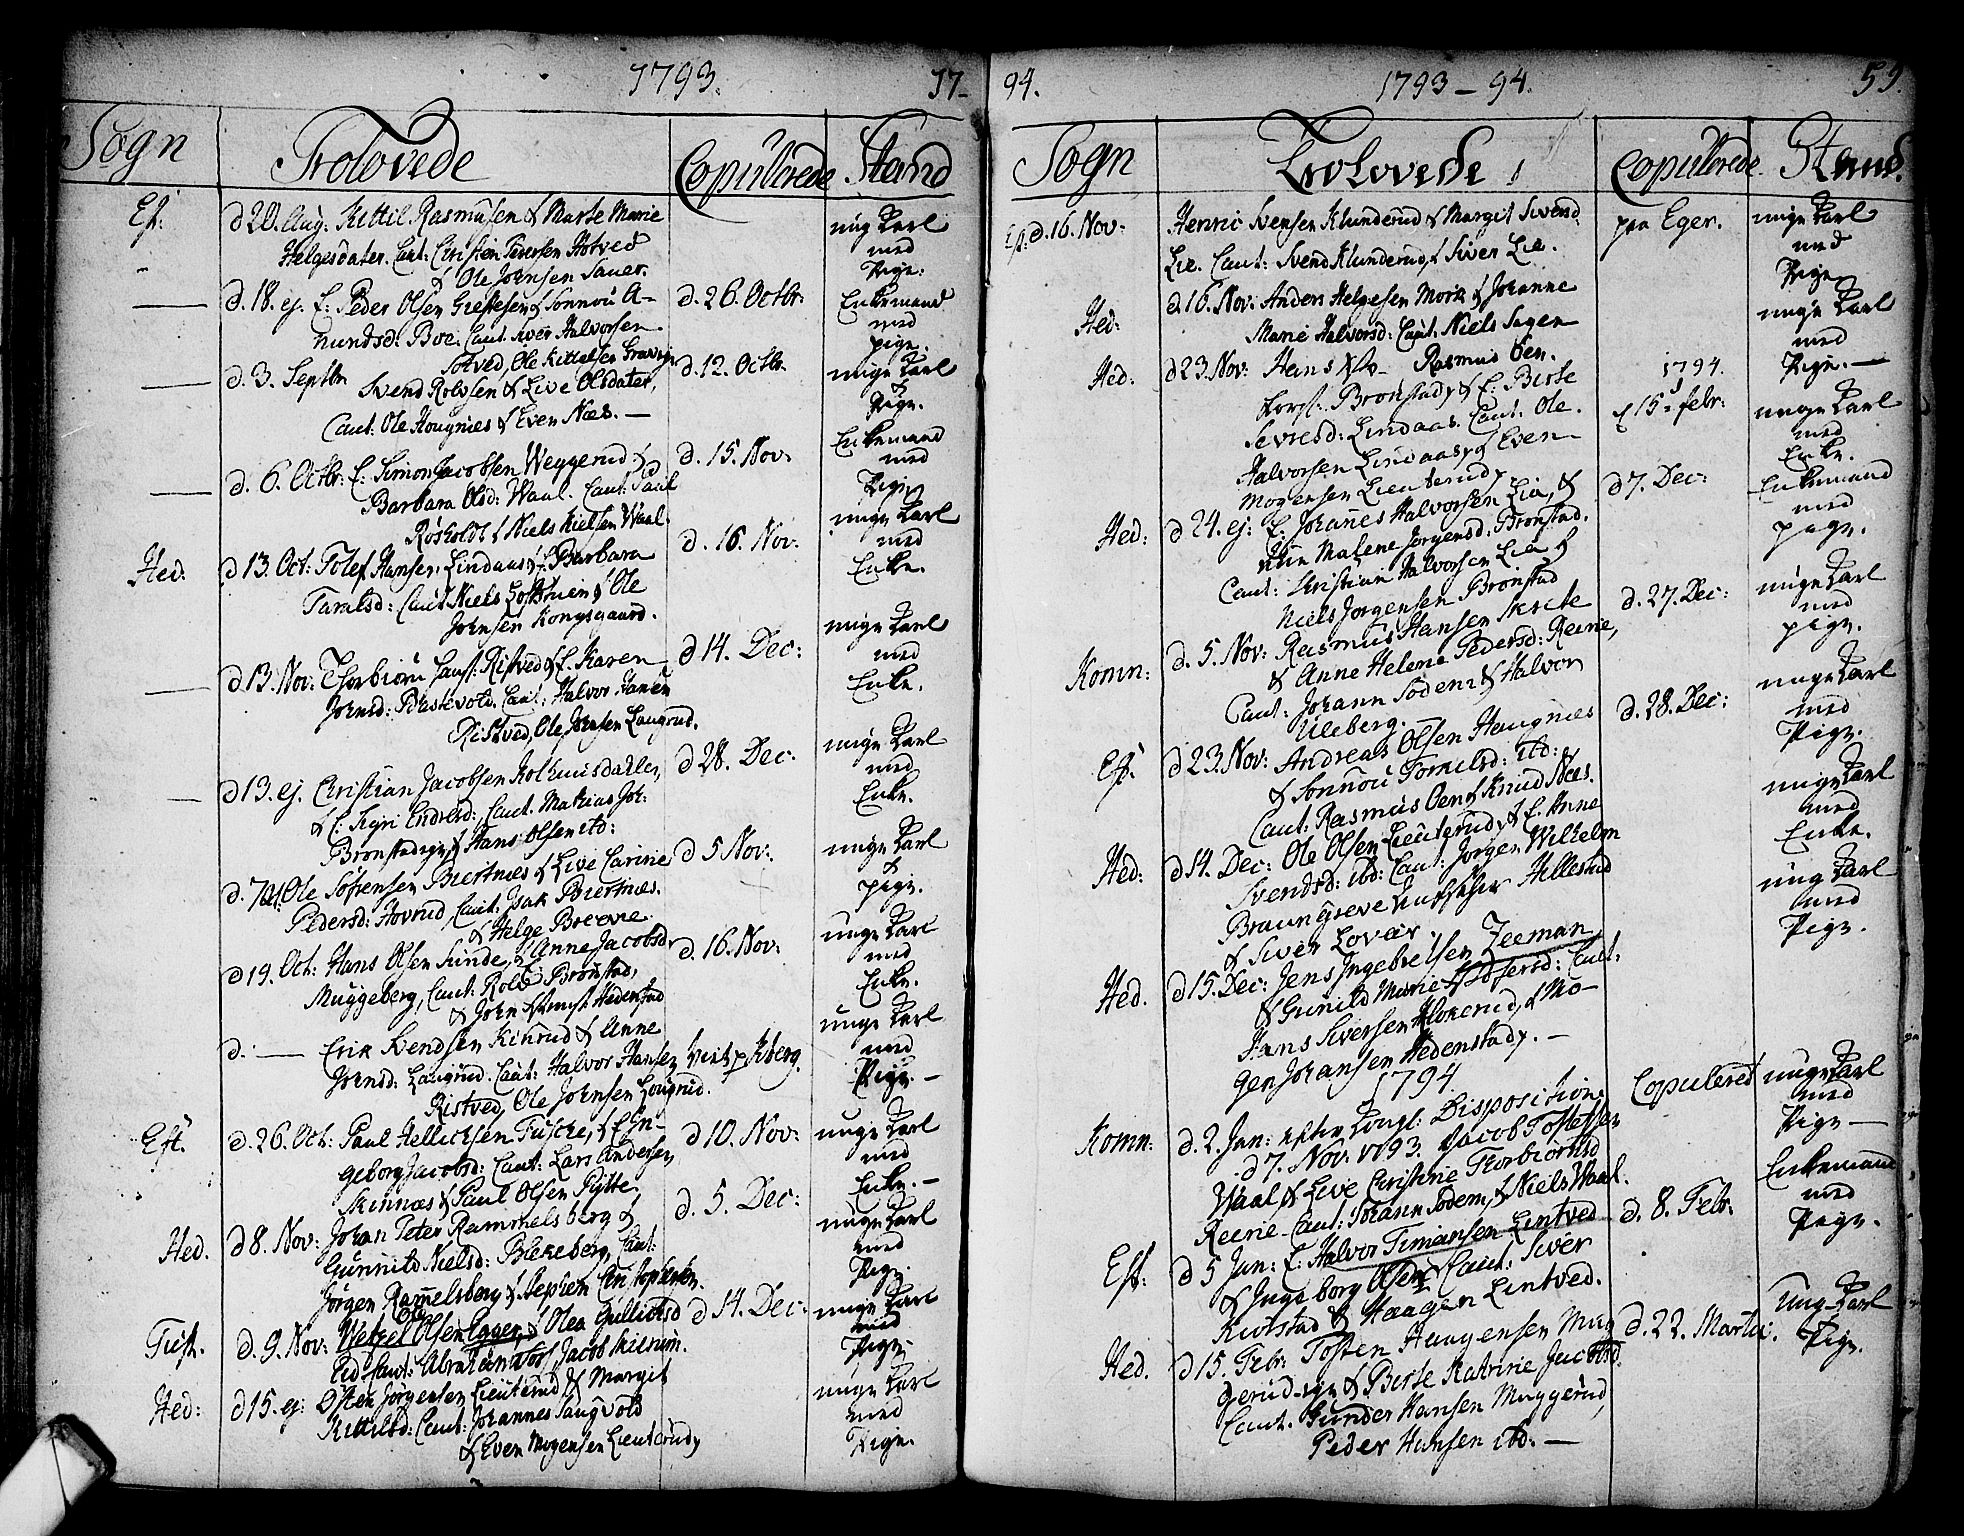 1793.
17-
Sogn
Trolovede
Copulerede
Stand
Ef:
d 20. Aug. Kittil Rasmusen & Marte Marie
Helgesdater. Caut: Christen Pedersen Hotved
& Ole Johnsen Sauer.
ung Karl
med
Pige.
d. 18. ej. E: Peder Olsen & Sonnou A-
mundsd: Boe. Caut. Iver Halvorsen
Hotved, Ole Kittelsen
d. 26. Octbr:
Enkemand
med
pige.
d. 3. Septbr
Svend Rolvsen & Live Olsdater,
Caut: Ole Hougnæs & Even Næs. —
d. 12. Octbr.
unge Karl
&
Pige.
d. 6. Octbr: E: Simon Jacobsen Weggerud &
Barbara Olsd: Waal. Caut: Paul
Rosholdt & Niels Kielsen Waal.
d. 15. Nov.
Enkemand
med
Pige
Hed.
d 13. Oct: Tolef Hansen Lindaas & E: Barbara
Taralsd: Caut Niels & Ole
Johnsen Kongsgaard.
d. 16. Nov:
unge Karl
med
Enke.
d 13. Nov: Thorbiørn Ristved & E. Karen
Johnsd: Caut: Halvor Hansen
Ristved, Ole Johnsen Laugrud.
d 14. Dec:
unge Karl
med
Enke.
d 13. ej. Christian Jacobsen
& E: Endresd: Caut. Mathias Joh:
& Hans Olsen itd:
d 28. Dec.
unge Karl
med
Enke.
Ole Sørensen Biertnæs & Live Carine
Pedersd: Hovrud, Caut: Isak Biertnæs.
& Helge
d 5 Nov:
unge Karl
&
pige.
d 19. Oct: Hans Olsen Sunde, & Anne Jacobsd
Muggeberg, Caut: Rolf Bronstad,
& John Hedenstad
d. 16. Nov:
unge Karl
med
Enke.
d. — Erik Svendsen Kinrud & Anne
Johnsd: Laugrud. Caut: Halvor Hansen
Ristved, Ole Johnsen Lougrud.
viet p Kberg.
unge Karl
med
Pige. —
Eft.
d. 26. Oct: Paul Hellichsen & E: In-
geborg Jacobsd: Caut: Lars Andersen
Skinnæs & Paul Olsen
d 10. Nov:
unge Karl
med
Enke. —
Hed.
d 8. Nov: Johan Peter Rammelsberg &
Gunnild Nielsd: Blekeberg, Caut:
Jørgen Ramelsberg & Stephen Christophersen.
d. 5. Dec:
unge Karl
med
Pige.
d. 9. Nov: Wetzel Olsen Egger, & Olea Gullichsd
Abraham & Jacob
d 14. Dec:
unge Karl
med
Pige.
Hed:
d 15. ej: Østen Jørgensen Lieuterud & Margit
Kittilsd: Caut: Johannes Saugvold
& Even Mogensen Lieuterud
unge Karl
med
Pige.
94.
1793 – 94.
59.
Sogn
Trolovede
Copulerede.
Stand.
Ef: d. 16. Nov:
Henric Svensen Klunderud & Margit Swend
Lie. Caut: Svend Klunderud, & Siver Lie.
paa Eger.
unge Karl
med
Pige.
Hed:
d 16. Nov: Anders Helgesen Mork & Johanne
Marie Halvorsd: Caut. Niels Sagen
unge Karl
med
Pige. —
Hed.
d 23. Nov: Hans Rasmus Oen.
Bronstad & E: Birte
Sevresd: Lindaas. Caut: Ole.
Halvorsen Lindaas & Even
Mogensen Lieuterud
1794.
15 febr:
unge Karl
med
Enke.
Hed:
d 24. ej: E: Johanes Halvorsen Lie, &
Malene Jorgensd. Bronstad.
Caut: Christian Halvorsen Lie &
Niels Jorgensen Bronstad
d 7. Dec:
Enkemand
med
pige.
Komn:
d. 5. Nov: Rasmus Hansen
& Anne Helene Pedersd: Reine,
Caut: Johann Sodem & Halvor
Uleberg.
d. 27. Dec:
unge Karl
med
pige.
Ef:
d 23. Nov: Andreas Olsen Haugnæs
& Sonnou itd:
Caut. Rasmus Oen & Knud Næs.
d. 28. Dec:
unge Karl
med
Pige.
Hed:
d 14. Dec: Ole Olsen Lieuterud & E. Anne
Svendsd: ibd: Caut: Jørgen Wilhelm
Braun Hellestad
& Siver Lovaer.
unge Karl
med
Enke.
Hed.
d 15. Dec: Jens Ingebretsen Zeeman
& Gunild Marie Caut:
Hans Siversen & Mo-
gen Johansen Hedenstad. —
ung Karl
med
Pige.
1794
Copuleret
Komn:
d. 2. Jan: efter Kongl: Disposition
d 7. Nov. 1793. Jacob
Waal & Live Christine Thorbiørnsd
Reine. Caut: Johann Sodem, & Niels Waal.
unge Karl
med
Pige —
Eft:
d 5 Jan: E. Halvor Timansen Lintved
& Ingeborg Caut: Siver
& Haagen Lintved.
d. 8. Febr.
Enkemand
med
Pige.
Hed.
d 15. Febr: Tosten Haagensen Mug
gerud & Birte Katrine Jacobsd.
Caut. Gunder Hansen Muggerud,
Peder Hansen ibd. —
d. 22. Martii.
Ung Karl
Pige.